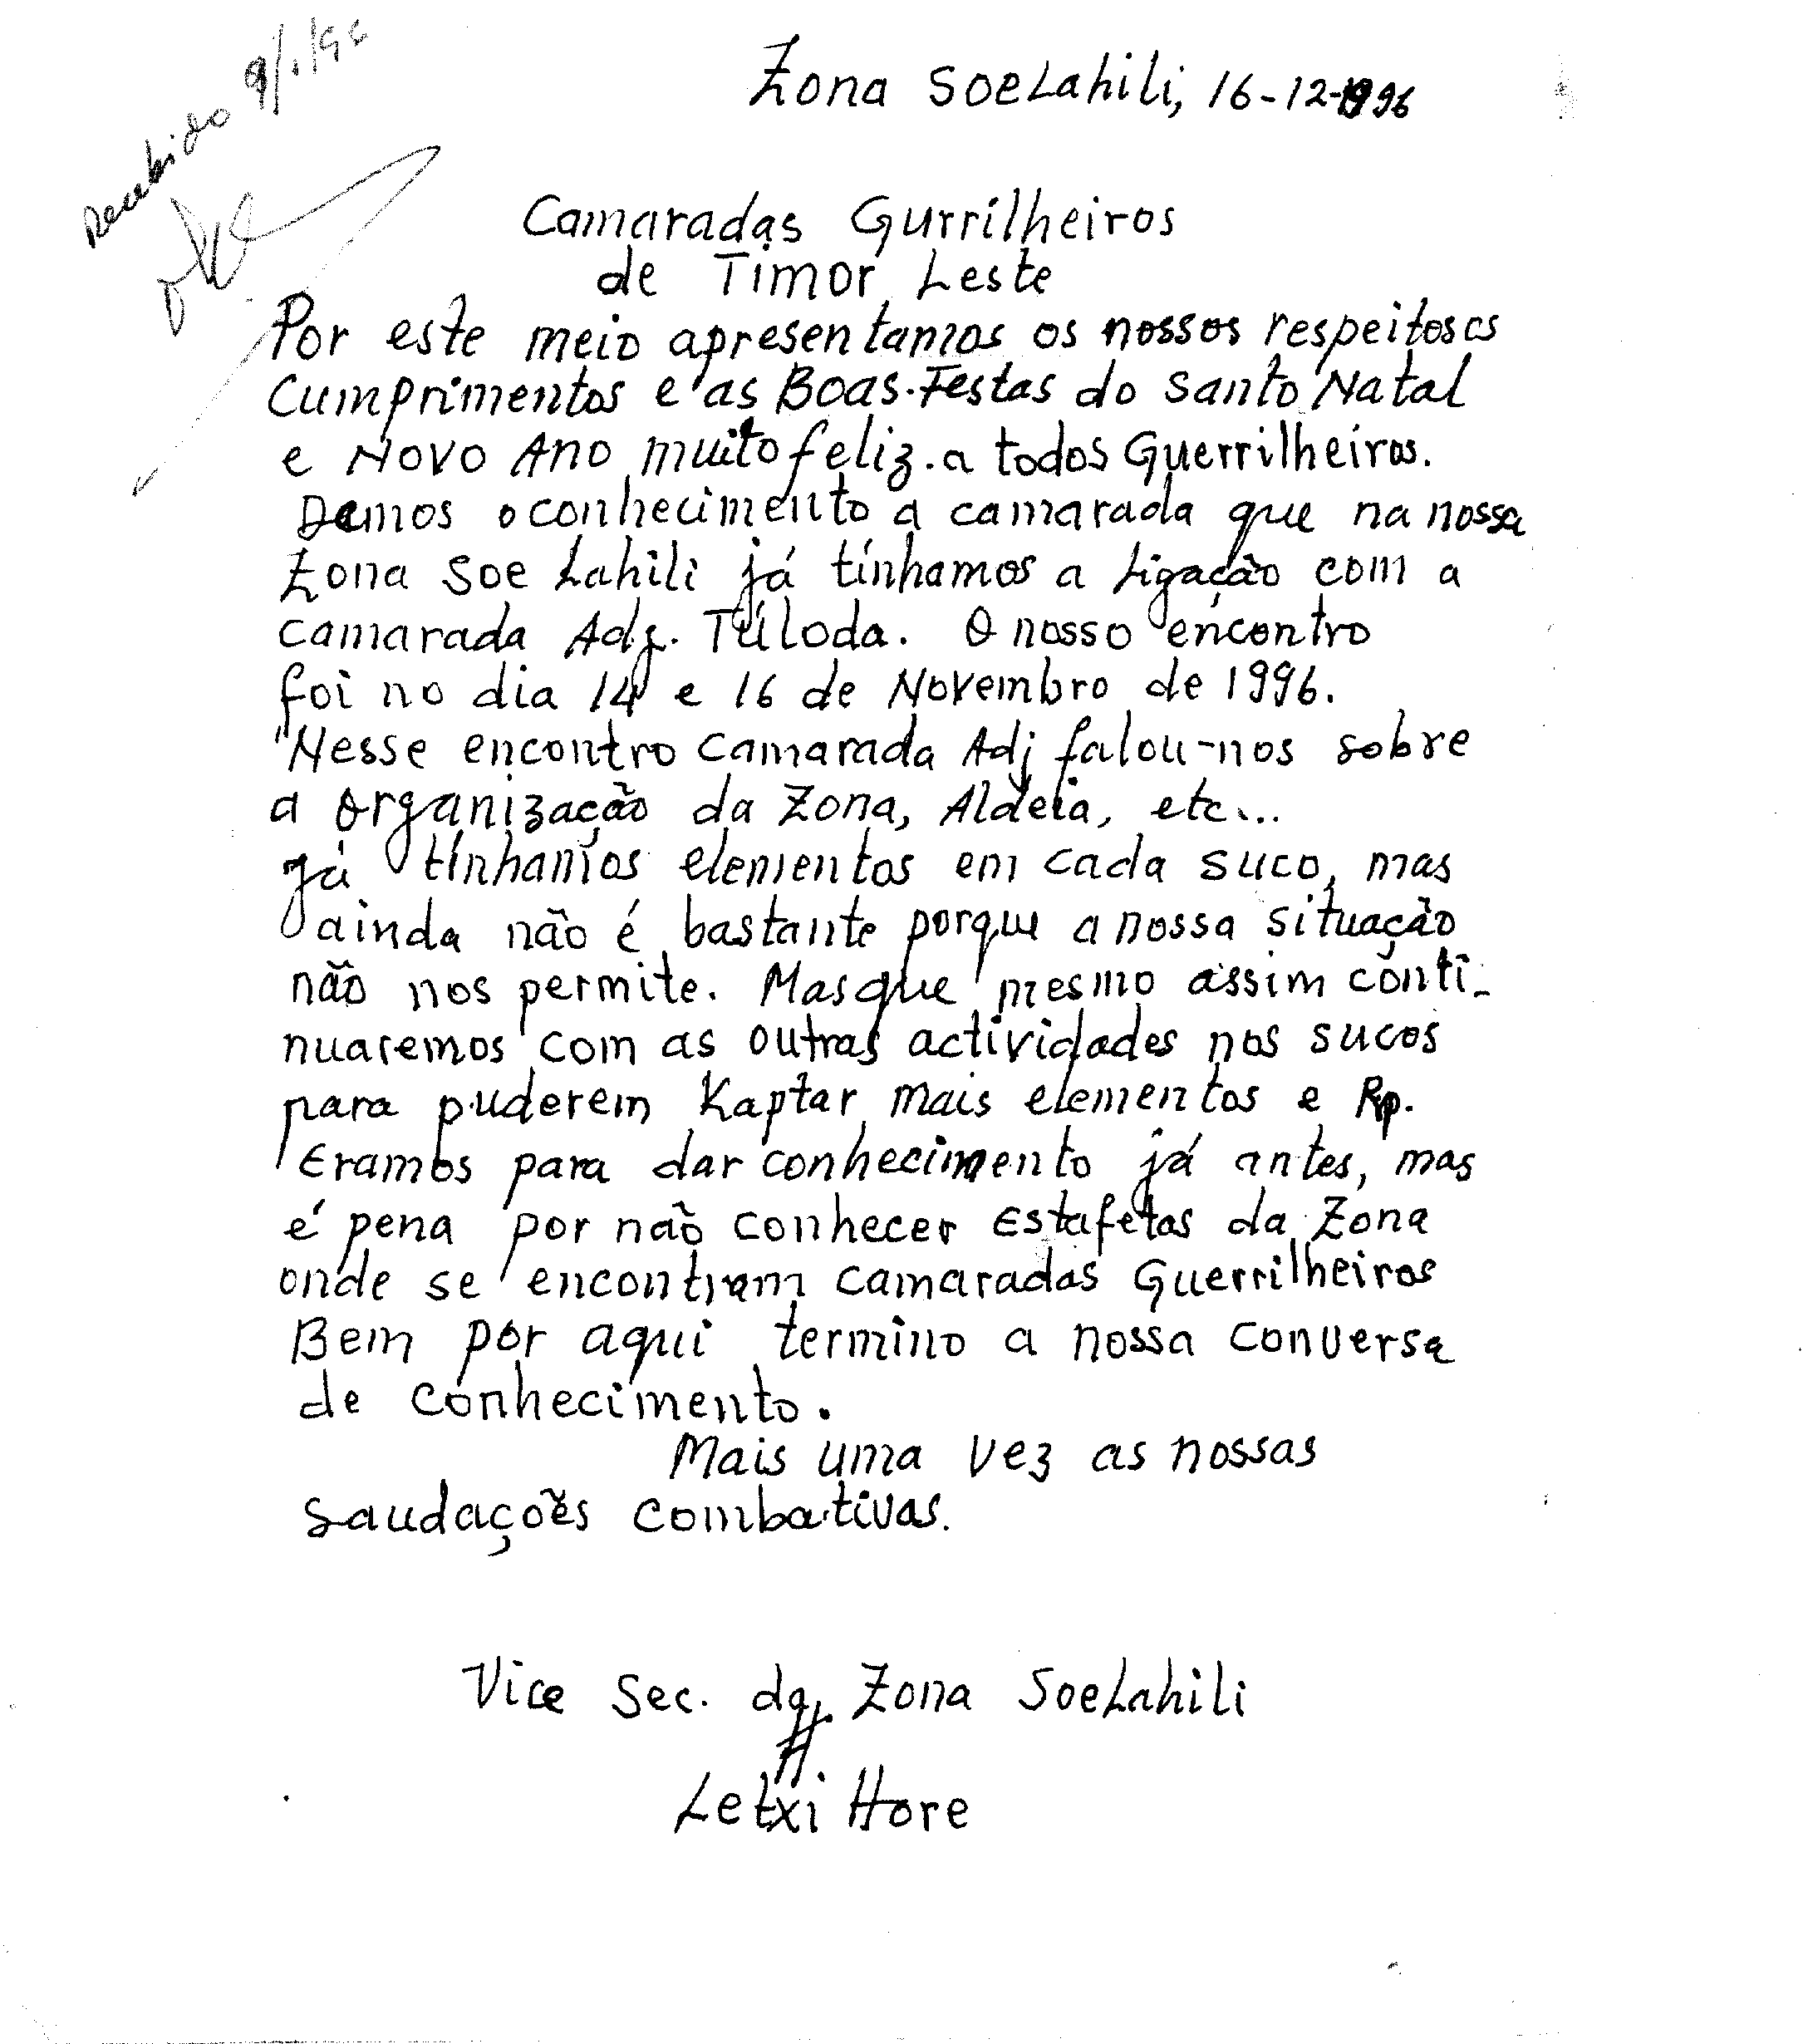 Recebido
Zona SoeLahili, 16-12-1996
Camaradas Gurrilheiros
de Timor Leste
Por este meio apresentamos os nossos respeitosos
Cumprimentos e as Boas-Festas do Santo Natal
e Novo Ano muito feliz. a todos Guerrilheiros.
Damos o conhecimento a camarada que na nossa
Zona Soe Lahili já tínhamos a Ligação com a
camarada Adj. Túloda. O nosso encontro
foi no dia 14 e 16 de Novembro de 1996.
"Nesse encontro camarada Adj falou-nos sobre
a organização da Zona, Aldeia, etc...
Já tínhamos elementos em cada suco, mas
ainda não é bastante porque a nossa situação
não nos permite. Masque mesmo assim conti-
nuaremos com as outras actividades nos sucos
para puderem Kaptar mais elementos e Rp.
Eramos para dar conhecimento já antes, mas
é pena por não conhecer Estafetas da Zona
onde se encontram camaradas Guerrilheiros
Bem por aqui termino a nossa conversa
de conhecimento.
Mais uma vez as nossas
Saudações combativas.
Vice Sec. da Zona SoeLahili
Letxi Hore